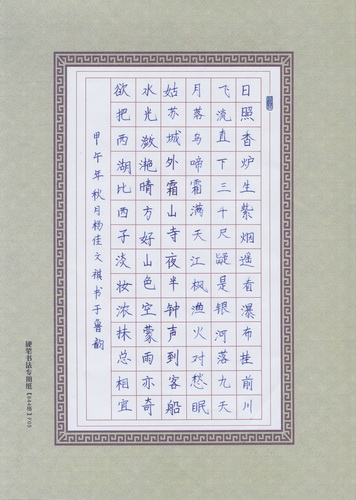 日照香炉生紫烟遥看瀑布挂前川
飞流直下三千尺疑是银河落九天
月落乌啼霜满天江枫渔火对愁眠
姑苏城外霜山寺夜半钟声到客船
水光潋滟晴方好山色空蒙雨亦奇
欲把西湖比西子淡妆浓抹总相宜
甲午年秋月杨佳文祺书于鲁韵
硬笔书法专用纸